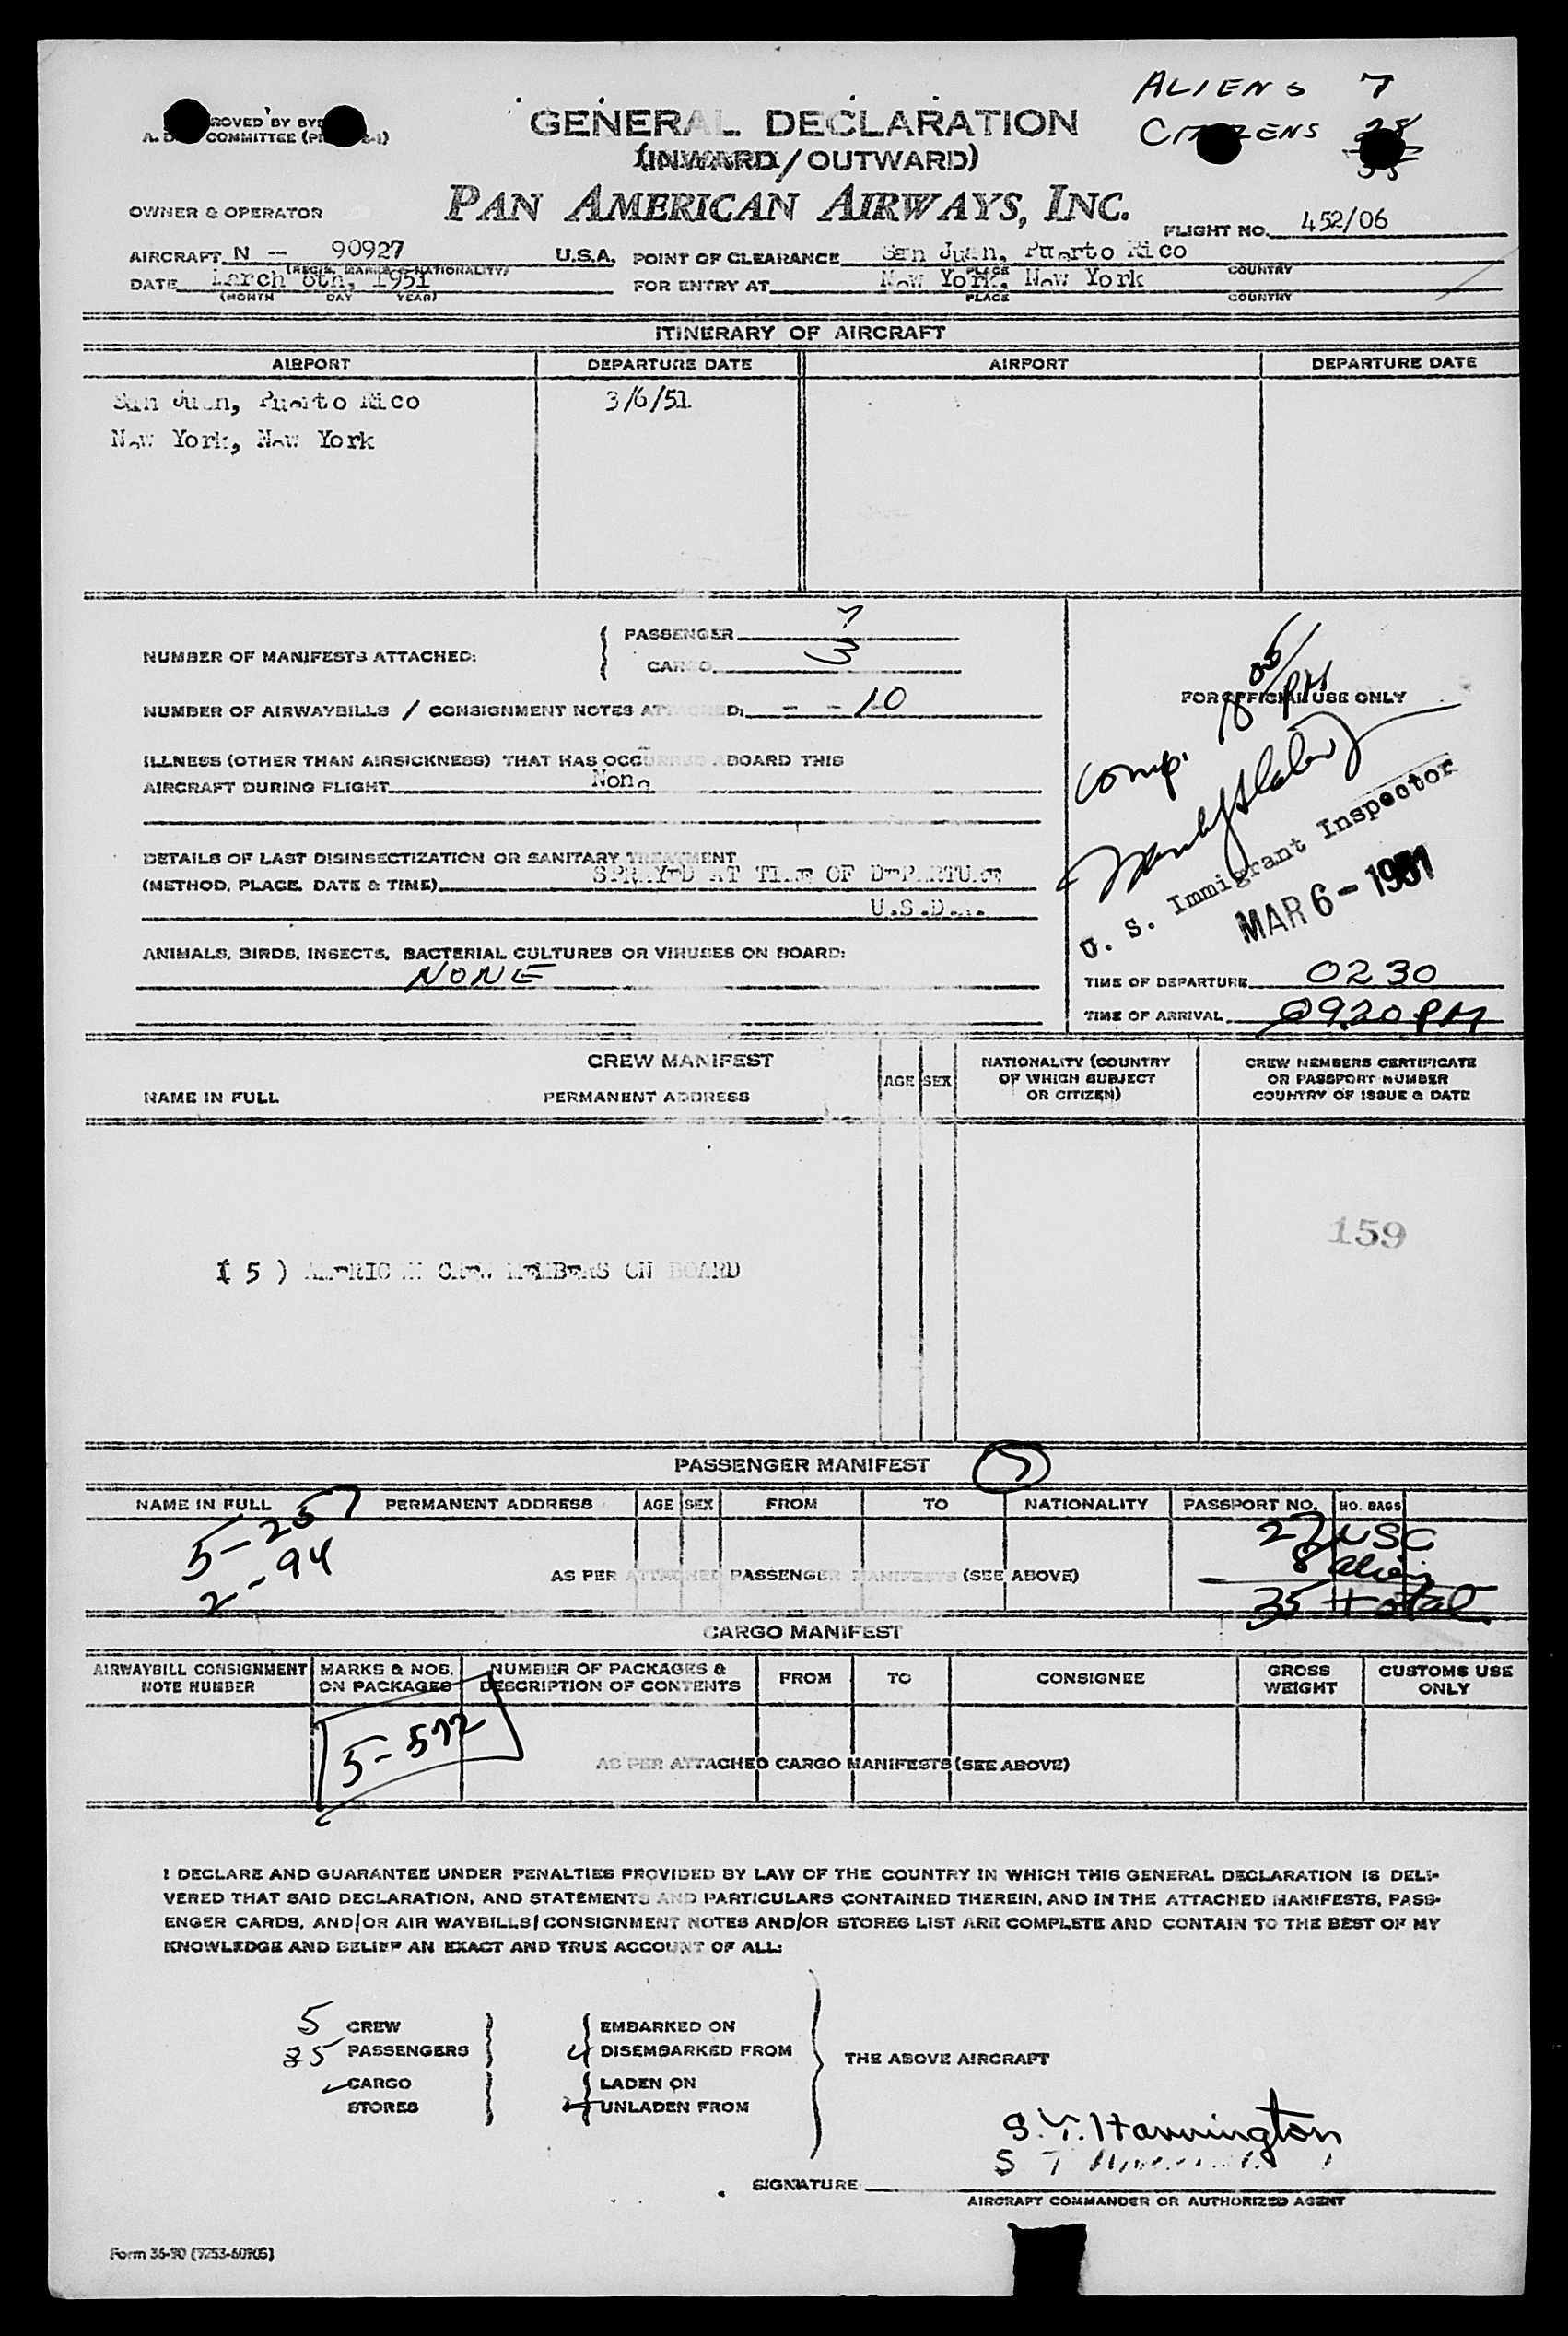 ALIENS 7
GENERAL DECLARATION
CITIZENS 28
(INWARD/OUTWARD)
PAN AMERICAN AIRWAYS, INC.
OWNER & OPERATOR
FLIGHT NO. 452/06
AIRCRAFT N - 90927 U.S.A. POINT OF CLEARANCE San Juan, Puerto Rico
(REGIS. MARKS & NATIONALITY) PLACE COUNTRY
DATE March 6th, 1951 FOR ENTRY AT New York, New York
(MONTH DAY YEAR) PLACE COUNTRY
ITINERARY OF AIRCRAFT
AIRPORT DEPARTURE DATE AIRPORT DEPARTURE DATE
San Juan, Puerto Rico 3/6/51
New York, New York
NUMBER OF MANIFESTS ATTACHED:
PASSENGER 7
CARGO 3
NUMBER OF AIRWAYBILLS / CONSIGNMENT NOTES ATTACHED: - - 10
ILLNESS (OTHER THAN AIRSICKNESS) THAT HAS OCCURRED ABOARD THIS
AIRCRAFT DURING FLIGHT None
DETAILS OF LAST DISINSECTIZATION OR SANITARY TREATMENT
(METHOD, PLACE, DATE & TIME) SPRAYED AT TIME OF DEPARTURE
U.S.D.A.
ANIMALS, BIRDS, INSECTS, BACTERIAL CULTURES OR VIRUSES ON BOARD:
NONE
FOR OFFICIAL USE ONLY
Comp. PM
U. S. Immigrant Inspector
MAR 6 - 1951
TIME OF DEPARTURE 0230
TIME OF ARRIVAL 0920 PM
CREW MANIFEST
NAME IN FULL PERMANENT ADDRESS AGE SEX NATIONALITY (COUNTRY OF WHICH SUBJECT OR CITIZEN) CREW MEMBERS CERTIFICATE OR PASSPORT NUMBER COUNTRY OF ISSUE & DATE
159
( 5 ) AMERICAN CREW MEMBERS ON BOARD
PASSENGER MANIFEST 7
NAME IN FULL PERMANENT ADDRESS AGE SEX FROM TO NATIONALITY PASSPORT NO. NO. BAGS
5-257
2-94
27 USC
8 alien
35 total
AS PER ATTACHED PASSENGER MANIFESTS (SEE ABOVE)
CARGO MANIFEST
AIRWAYBILL CONSIGNMENT NOTE NUMBER MARKS & NOS. ON PACKAGES NUMBER OF PACKAGES & DESCRIPTION OF CONTENTS FROM TO CONSIGNEE GROSS WEIGHT CUSTOMS USE ONLY
5-572
AS PER ATTACHED CARGO MANIFESTS (SEE ABOVE)
I DECLARE AND GUARANTEE UNDER PENALTIES PROVIDED BY LAW OF THE COUNTRY IN WHICH THIS GENERAL DECLARATION IS DELI-
VERED THAT SAID DECLARATION, AND STATEMENTS AND PARTICULARS CONTAINED THEREIN, AND IN THE ATTACHED MANIFESTS, PASS-
ENGER CARDS, AND/OR AIR WAYBILLS/CONSIGNMENT NOTES AND/OR STORES LIST ARE COMPLETE AND CONTAIN TO THE BEST OF MY
KNOWLEDGE AND BELIEF AN EXACT AND TRUE ACCOUNT OF ALL:
5 CREW EMBARKED ON
35 PASSENGERS DISEMBARKED FROM
THE ABOVE AIRCRAFT
CARGO LADEN ON
STORES UNLADEN FROM
S. T. Hannington
SIGNATURE
AIRCRAFT COMMANDER OR AUTHORIZED AGENT
Form 36-90 (9253-60905)